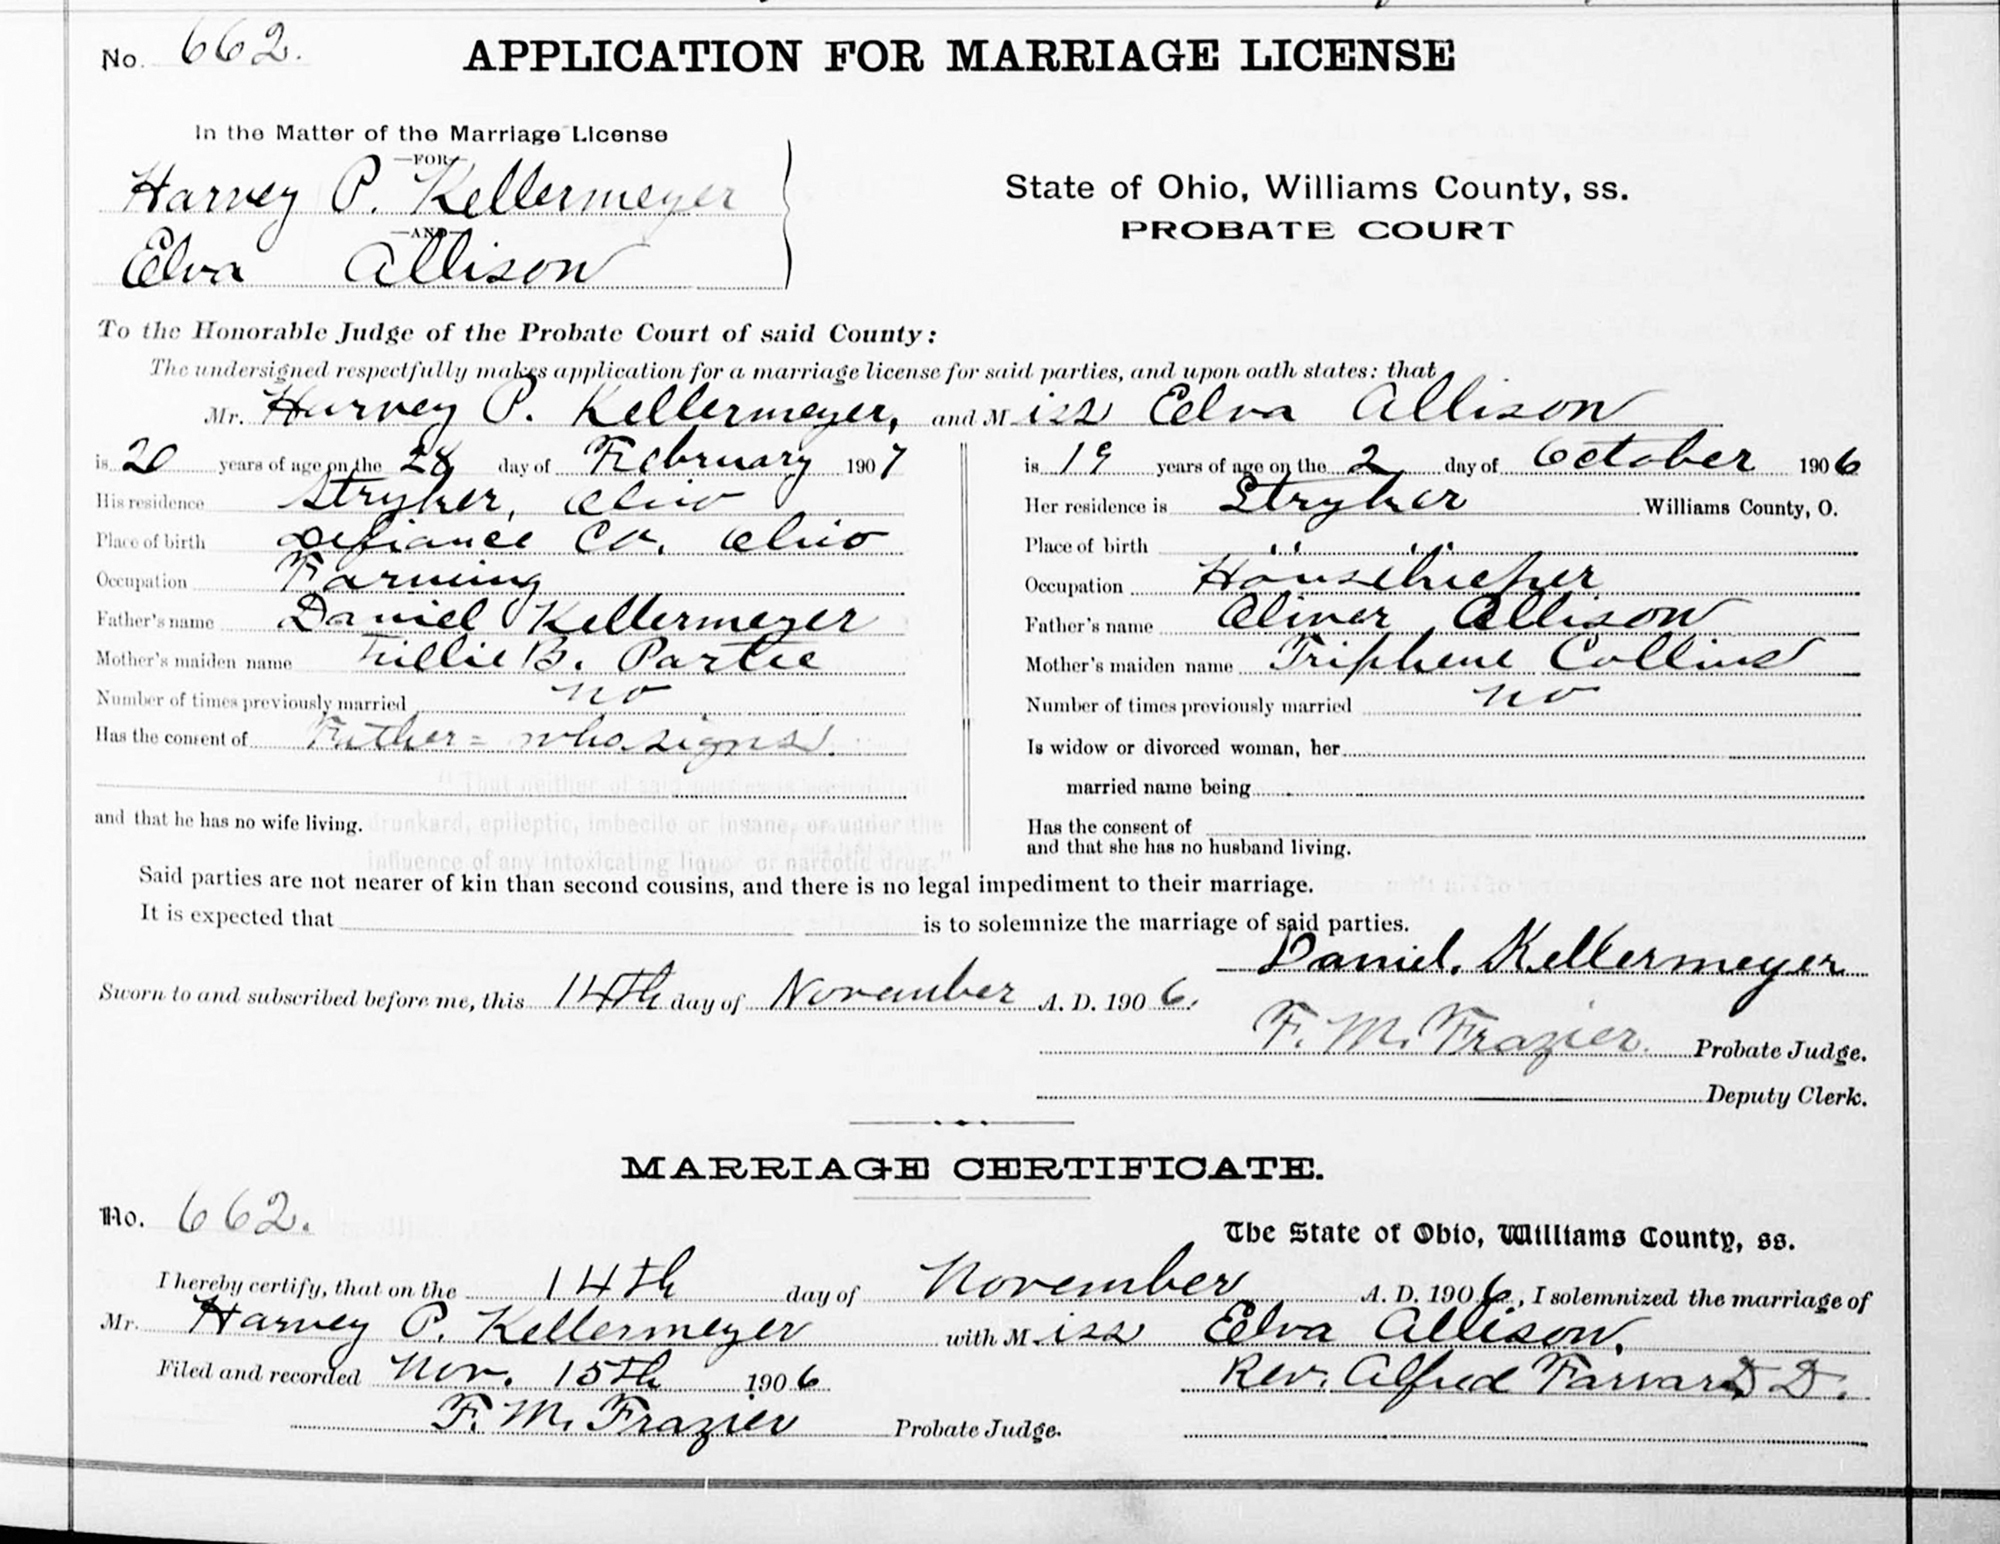 No. 662. APPLICATION FOR MARRIAGE LICENSE
In the Matter of the Marriage License
—FOR—
Harvey P. Kellermeyer
—AND—
Elva Allison
State of Ohio, Williams County, ss.
PROBATE COURT
To the Honorable Judge of the Probate Court of said County:
The undersigned respectfully makes application for a marriage license for said parties, and upon oath states: that
Mr. Harvey P. Kellermeyer, and Miss Elva Allison
is 20 years of age on the 28 day of February 1907
His residence Stryker, Ohio
Place of birth Defiance Co. Ohio
Occupation Farming
Father's name Daniel Kellermeyer
Mother's maiden name Tillie B. Partee
Number of times previously married no
Has the consent of Father = who signs.
and that he has no wife living.
"That neither of said parties is an habitual
drunkard, epileptic, imbecile or insane, or under the
influence of any intoxicating liquor or narcotic drug."
is 19 years of age on the 2 day of October 1906
Her residence is Stryker Williams County, O.
Place of birth " "
Occupation Housekeeper
Father's name Oliver Allison
Mother's maiden name Triphene Collins
Number of times previously married no
Is widow or divorced woman, her
married name being
Has the consent of
and that she has no husband living.
Said parties are not nearer of kin than second cousins, and there is no legal impediment to their marriage.
It is expected that is to solemnize the marriage of said parties.
Daniel. Kellermeyer
Sworn to and subscribed before me, this 14th day of November A. D. 1906.
F. M. Frazier. Probate Judge.
Deputy Clerk.
MARRIAGE CERTIFICATE.
No. 662.
The State of Ohio, Williams County, ss.
I hereby certify, that on the 14th day of November A. D. 1906, I solemnized the marriage of
Mr. Harvey P. Kellermeyer with Miss Elva Allison.
Filed and recorded Nov. 15th 1906 Rev. Alfred Farvar D. D.
F. M. Frazier Probate Judge.